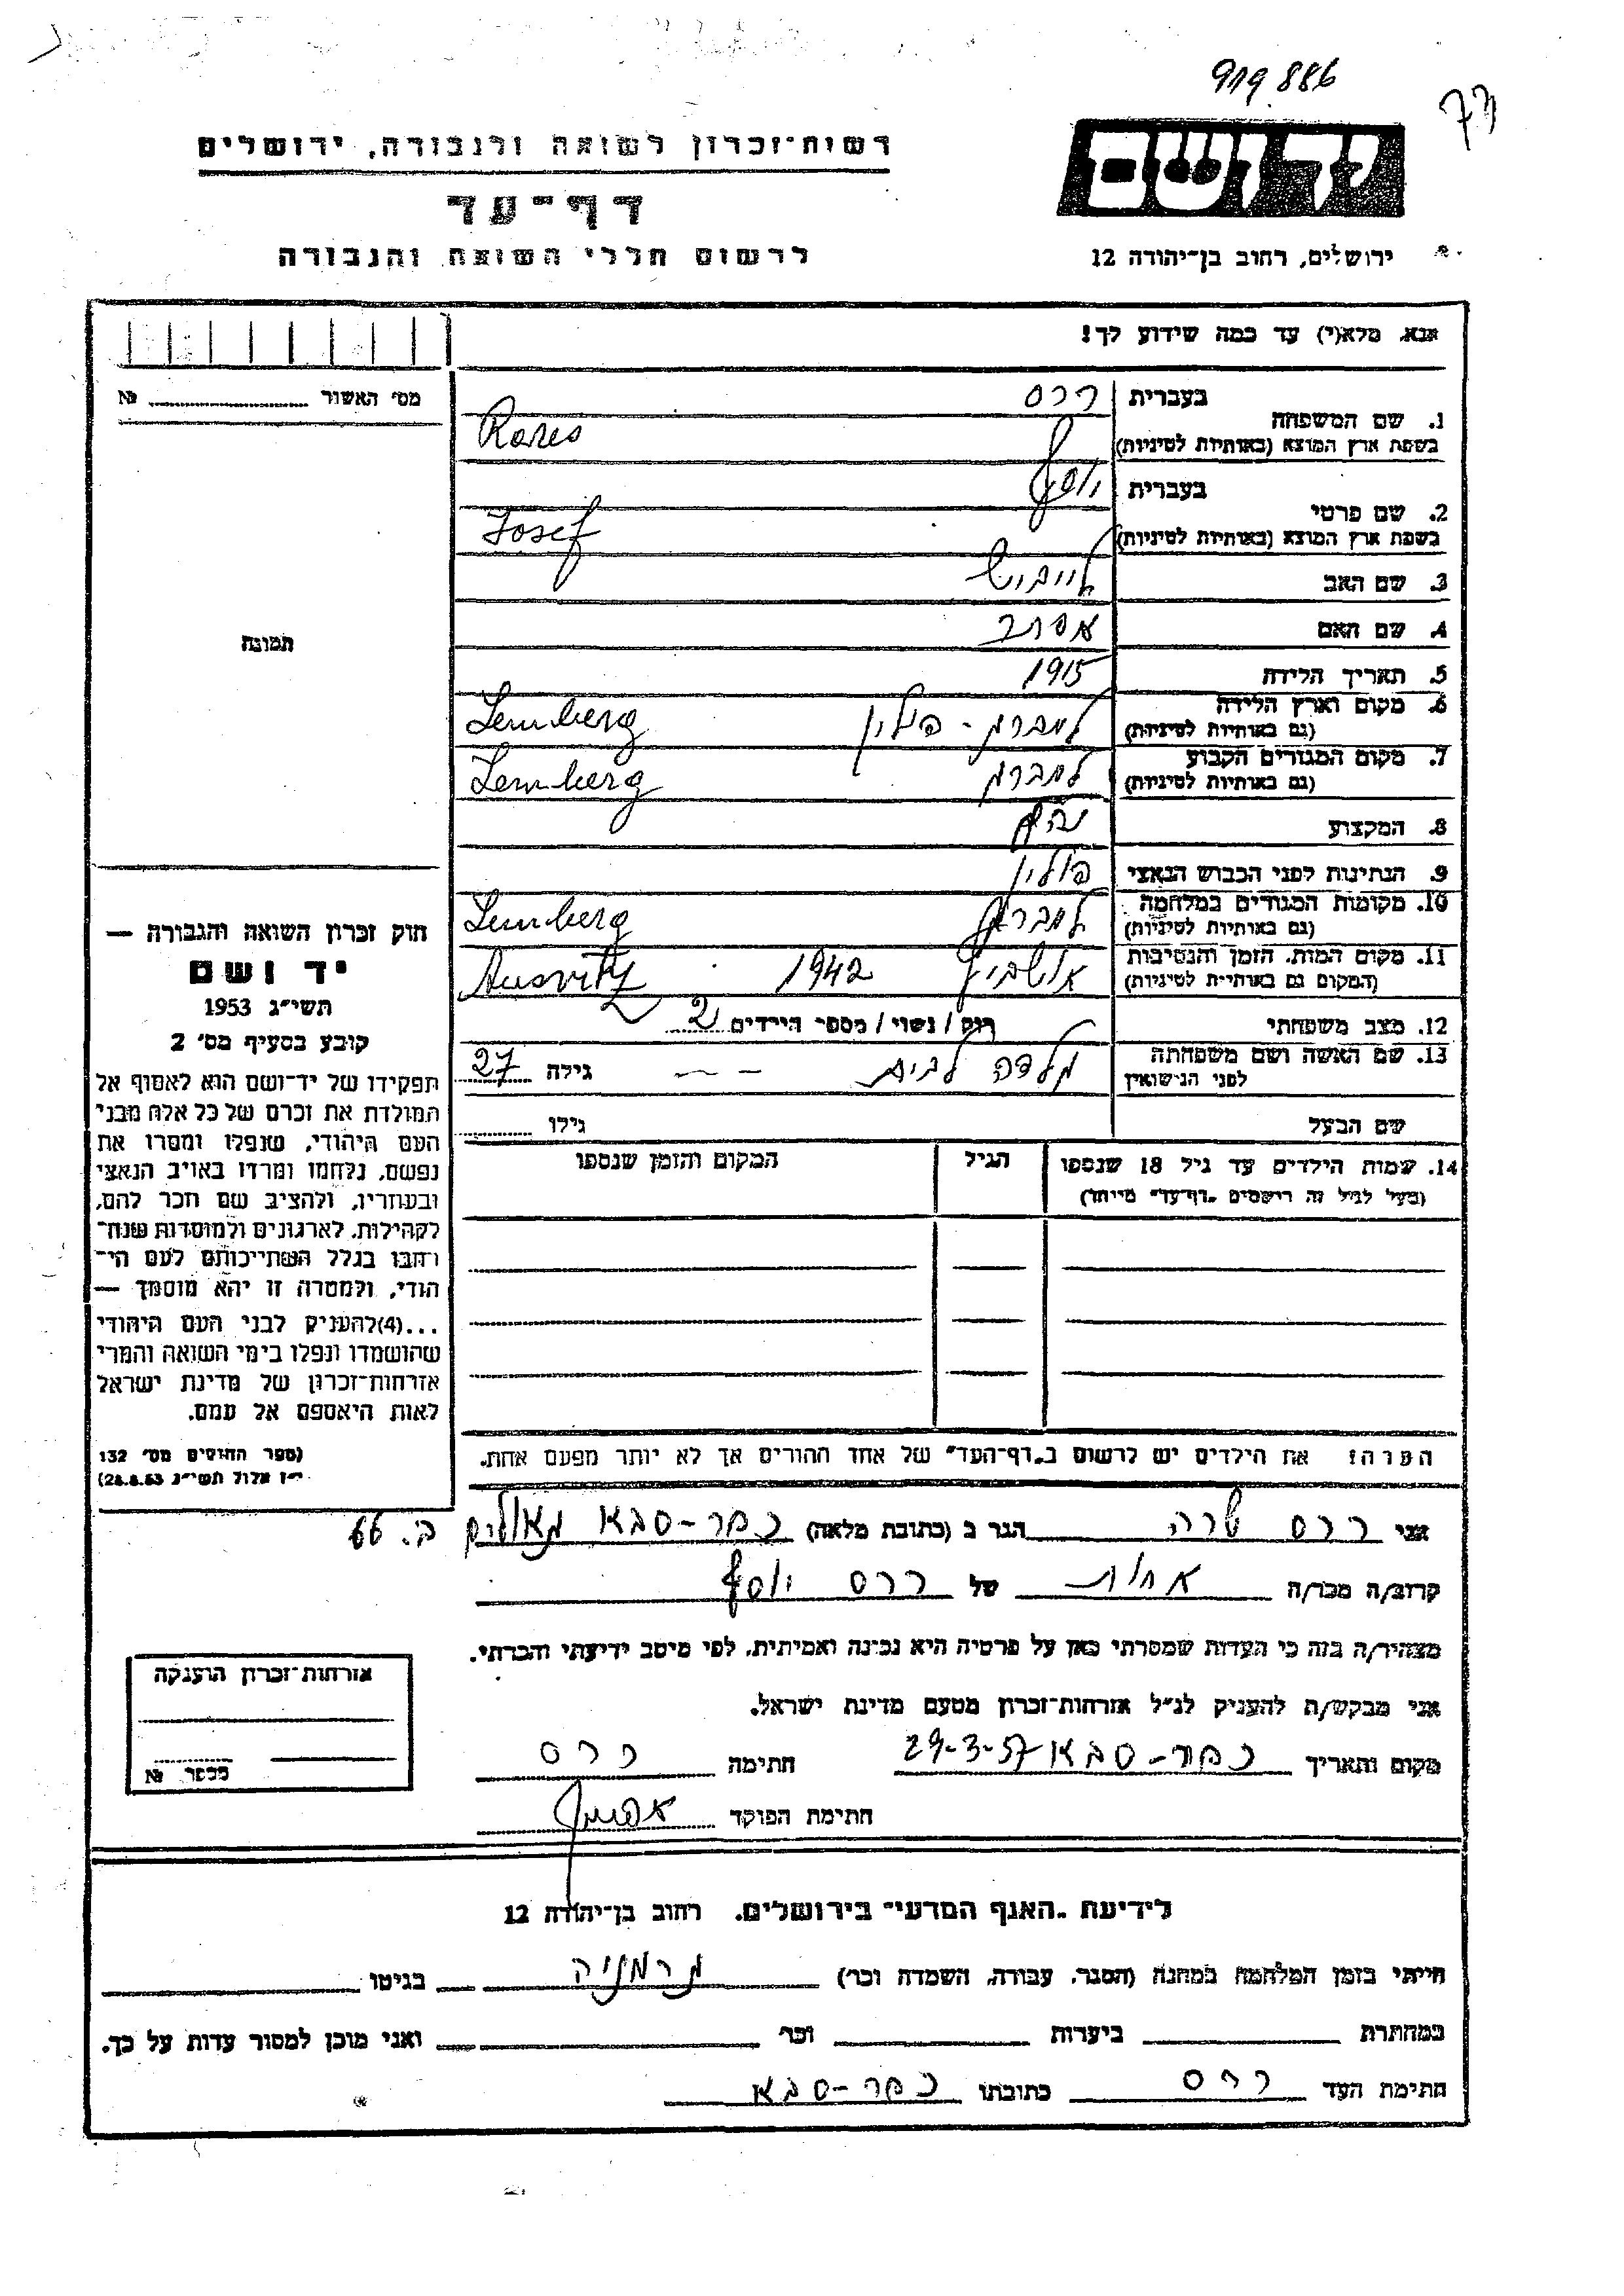 919886
רשות־זכרון לשואה ולגבורה, ירושלים
יד ושם
דף־עד
לרשום חללי השואה והגבורה
ירושלים, רחוב בן־יהודה 12
אנא, מלא(י) עד כמה שידוע לך!
מס׳ האשור № ........
1. שם המשפחה בעברית ררס
בשפת ארץ המוצא (באותיות לטיניות) Rares
2. שם פרטי בעברית יוסף
בשפת ארץ המוצא (באותיות לטיניות) Josef
3. שם האב לייביש
4. שם האם
5. תאריך הלידה 1915
6. מקום וארץ הלידה (גם באותיות לטיניות) למברג - פולין Lemberg
7. מקום המגורים הקבוע (גם באותיות לטיניות) למברג Lemberg
8. המקצוע נהג
9. הנתינות לפני הכבוש הנאצי פולין
10. מקומות המגורים במלחמה (גם באותיות לטיניות) למברג Lemberg
11. מקום המות, הזמן והנסיבות (המקום גם באותיות לטיניות) אושביץ 1942 Ausvitz
12. מצב משפחתי רוק / נשוי / מספר הילדים 2
13. שם האשה ושם משפחתה לפני הנישואין לבית גילה 27
שם הבעל גילו ........
14. שמות הילדים עד גיל 18 שנספו
(מעל לגיל זה רושמים „דף־עד״ מיוחד)
הגיל
המקום והזמן שנספו
הערה: את הילדים יש לרשום ב„דף־העד״ של אחד ההורים אך לא יותר מפעם אחת.
תמונה
חוק זכרון השואה והגבורה —
יד ושם
תשי״ג 1953
קובע בסעיף מס׳ 2
תפקידו של יד־ושם הוא לאסוף אל
המולדת את זכרם של כל אלה מבני
העם היהודי, שנפלו ומסרו את
נפשם, נלחמו ומרדו באויב הנאצי
ובעוזריו, ולהציב שם וזכר להם,
לקהילות, לארגונים ולמוסדות שנח־
רבו בגלל השתייכותם לעם הי־
הודי, ולמטרה זו יהא מוסמך —
...(4)להעניק לבני העם היהודי
שהושמדו ונפלו בימי השואה והמרי
אזרחות־זכרון של מדינת ישראל
לאות היאספם אל עמם.
(ספר החוקים מס׳ 132
י״ז אלול תשי״ג 28.8.53)
אני ררס שרה הגר ב (כתובת מלאה) כפר-סבא גאולים ב. 66
קרוב/ה מכר/ה אחות של ררס יוסף
מצהיר/ה בזה כי העדות שמסרתי כאן על פרטיה היא נכונה ואמיתית, לפי מיטב ידיעתי והכרתי.
אני מבקש/ת להעניק לנ״ל אזרחות־זכרון מטעם מדינת ישראל.
מקום ותאריך כפר-סבא 29-3-57 חתימה ררס
חתימת הפוקד
אזרחות־זכרון הוענקה
מספר №
לידיעת „האגף המדעי״ בירושלים, רחוב בן־יהודה 12
הייתי בזמן המלחמה במחנה (הסגר, עבודה, השמדה וכו׳) גרמניה בגיטו
במחתרת ביערות וכו׳ ואני מוכן למסור עדות על כך.
חתימת העד ררס כתובתו כפר-סבא